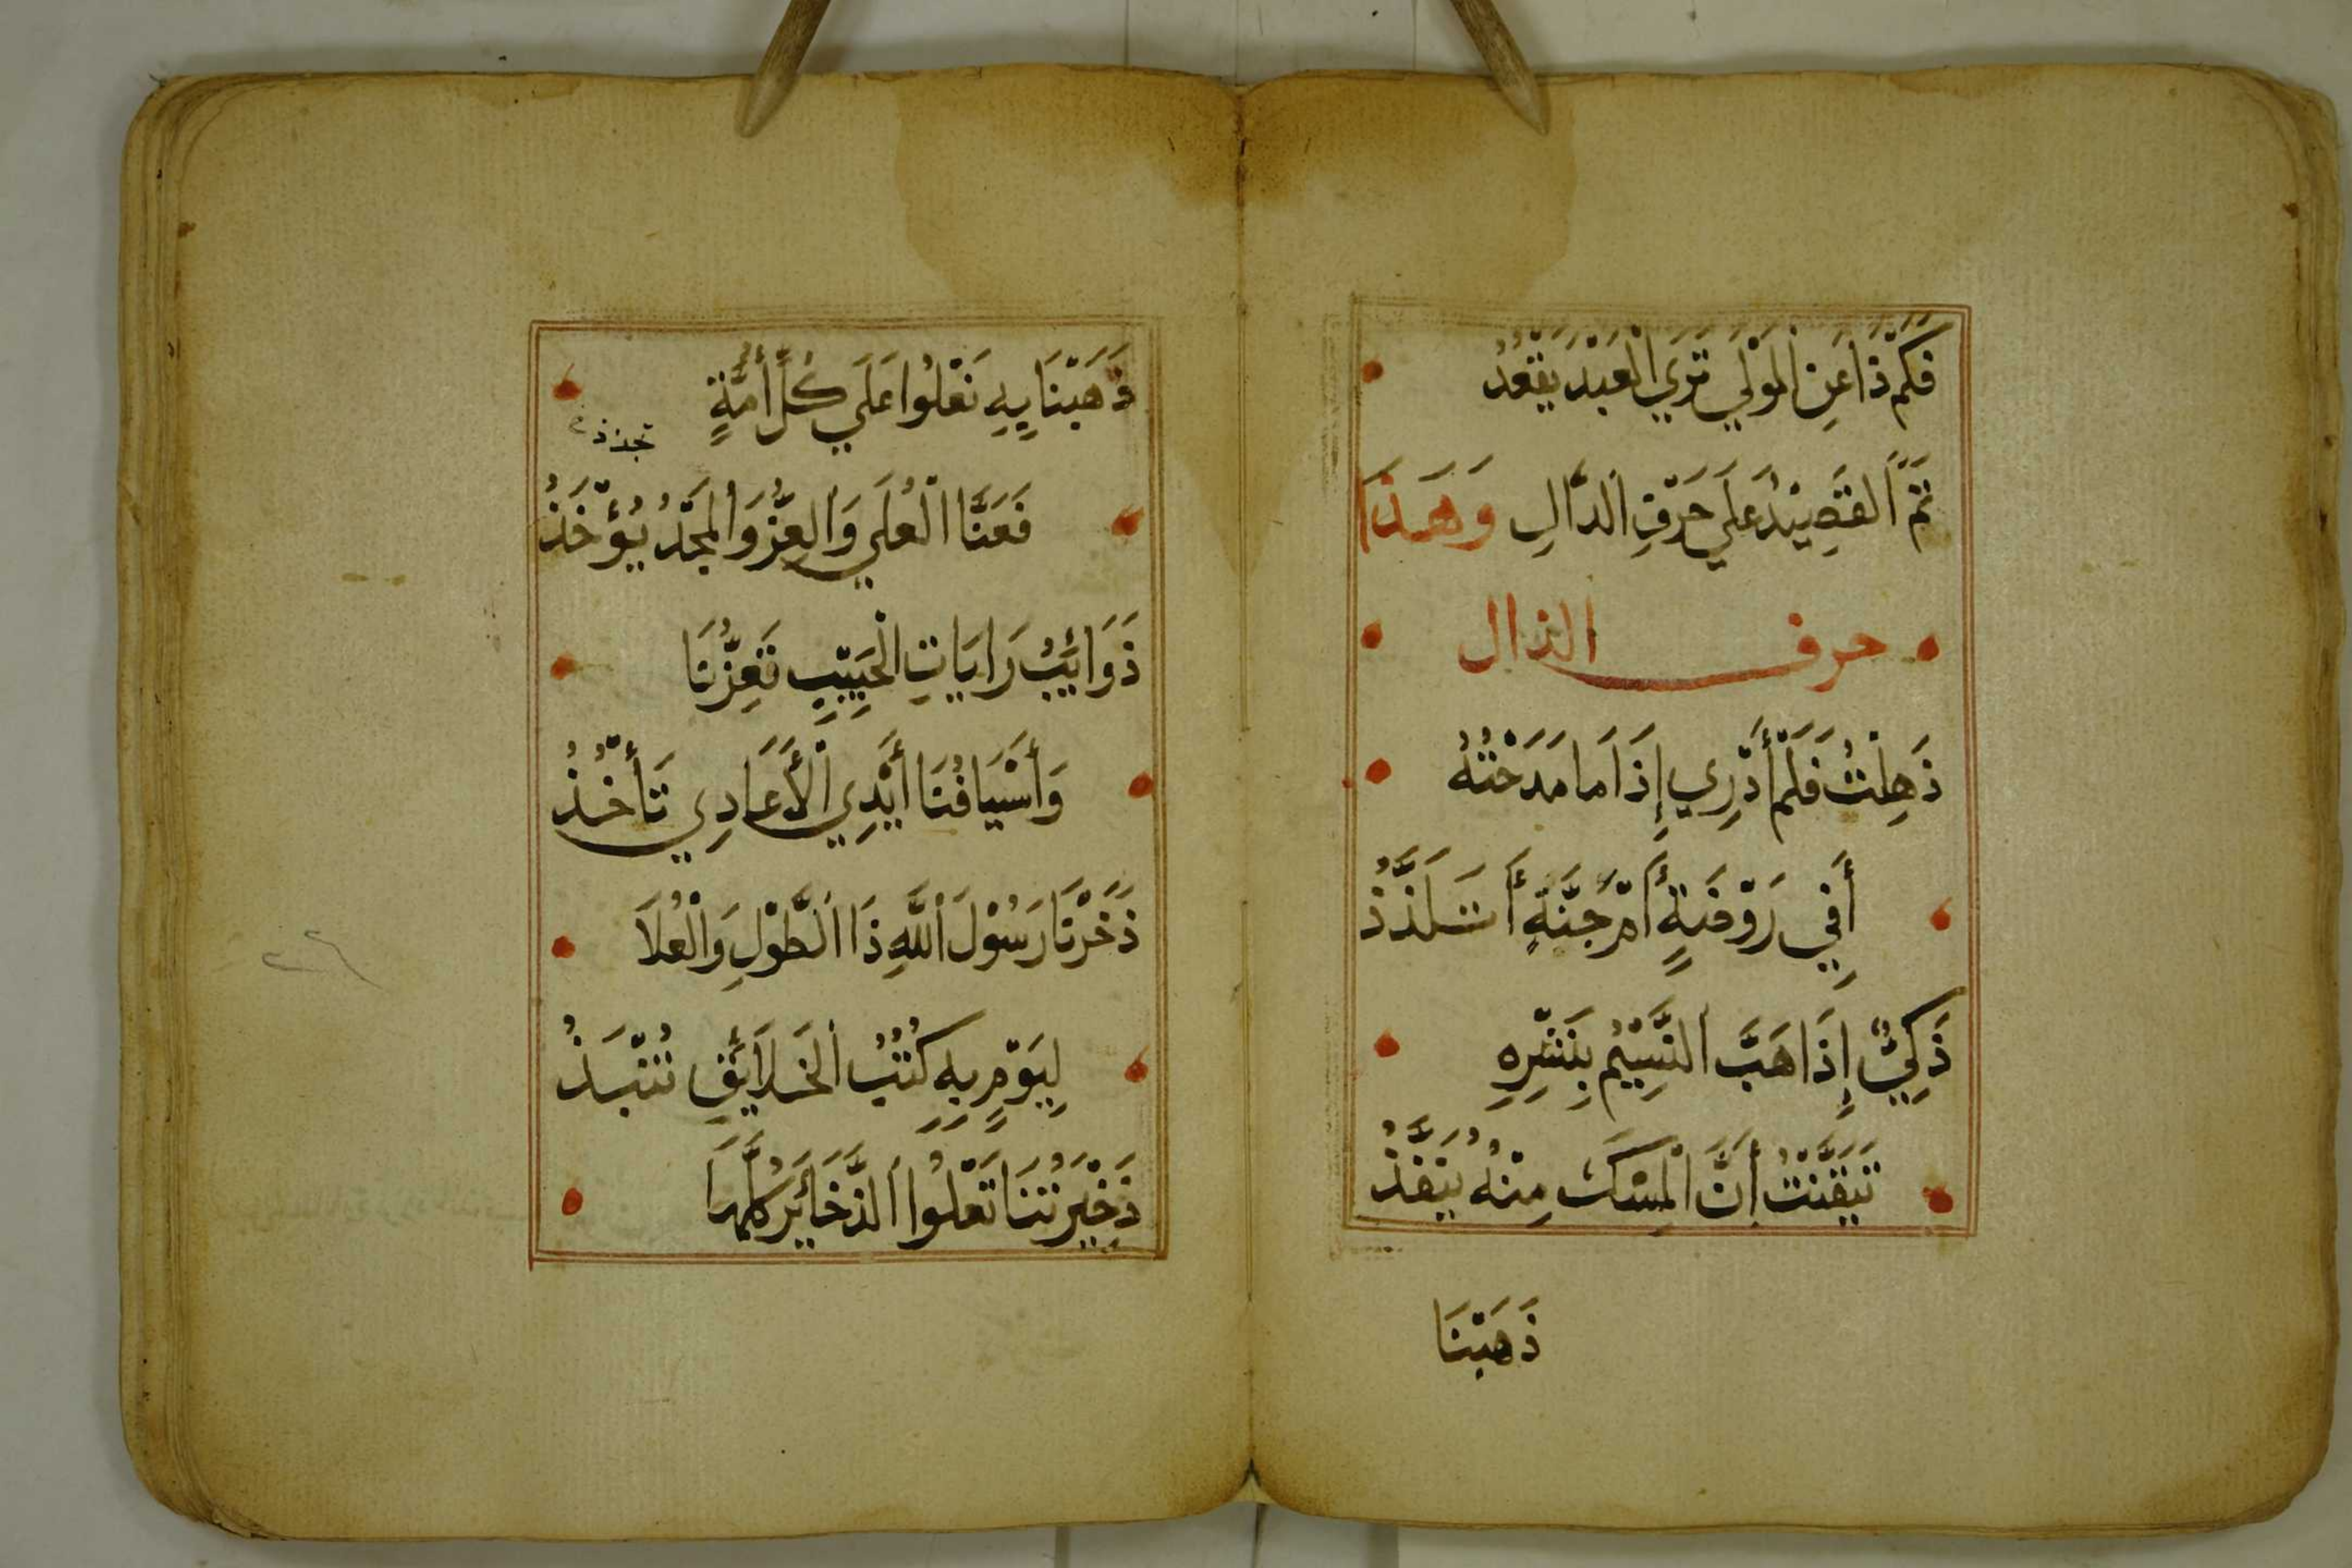 فَكَمْ ذَا عَنِ الْمَوْلَي تَرَي الْعَبْدَ يَقْعُدُ
تَمَّ الْقَصِيْدُ عَلَي حَرْفِ الدَّالِ وَهَذَا
حرف الذال
ذَهِلْتُ فَلَمْ أَدْرِي إِذَا مَا مَدَحْتُهُ
أَفِي رَوْضَةٍ أَمْ جَنَّةٍ أَتَلَذَّذُ
ذَكِيٌّ إِذَا هَبَّ النَّسِيْمُ بِنَشْرِهِ
تَيَقَّنْتُ أَنَّ الْمِسْكَ مِنْهُ يَنْفُذُ
ذَهَبْنَا
ذَهَبْنَا بِهِ نَعْلُوا عَلَي كُلِّ أُمَّةٍ
فَعَنَّا الْعُلَي وَالْعِزُّ وَالْمَجْدُ يُؤْخَذُ
ذَوَائِبُ رَايَاتِ الْحَبِيْبِ تَعِزُّنَا
وَأَسْيَافُنَا أَيْدِي الْأَعَادِي تَأْخُذُ
ذَخَرْنَا رَسُوْلَ اللَّهِ ذَا الطَّوْلِ وَالْعُلَا
لِيَوْمٍ بِهِ كُتُبُ الْخَلَائِقِ تُنْبَذُ
ذَخِيْرَتُنَا تَعْلُوا الذَّخَائِرَ كُلَّهَا
٢٦